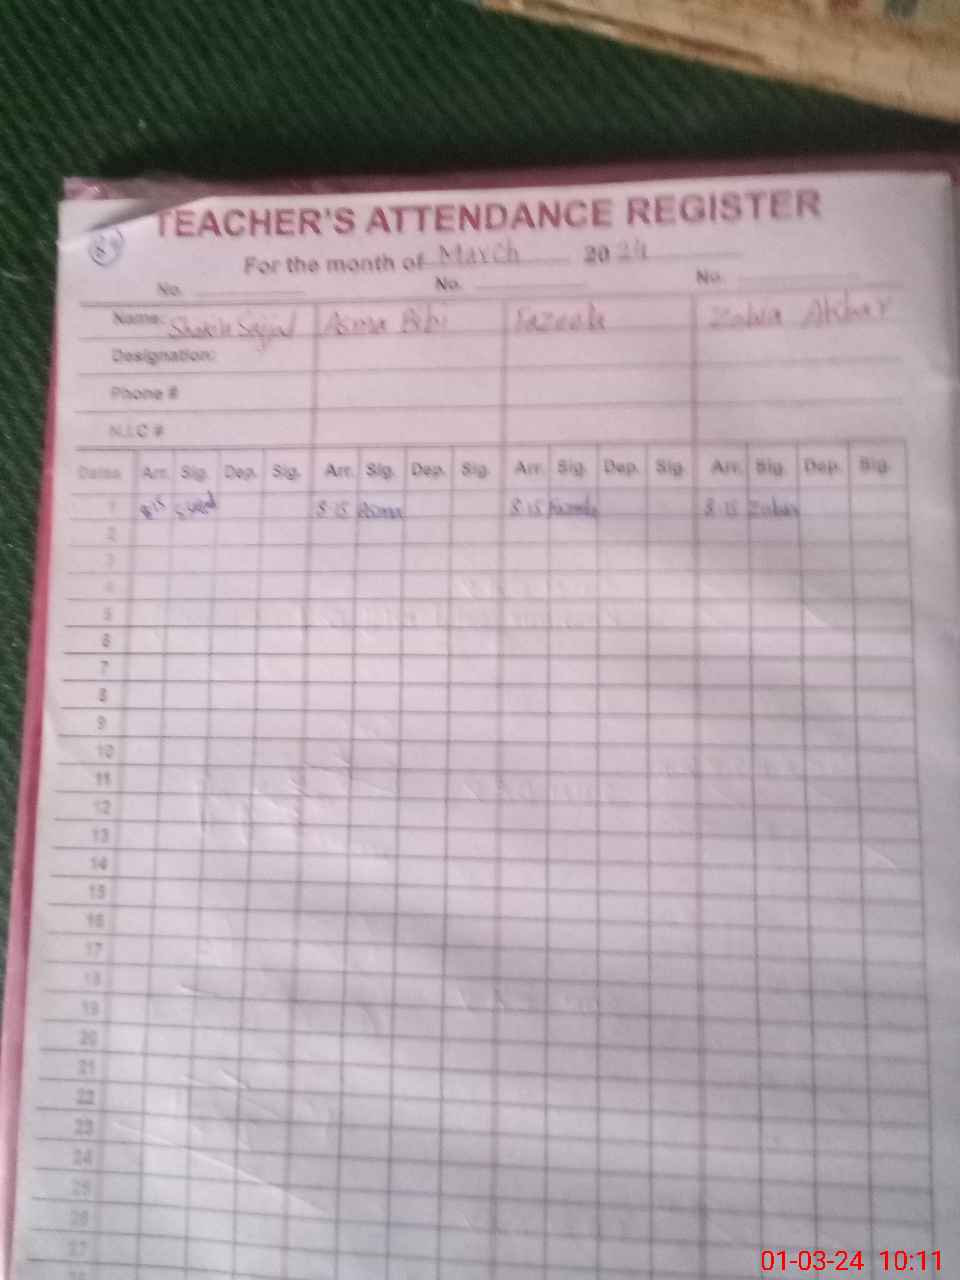 TEACHER'S ATTENDANCE REGISTER
For the month of March 2024
No. No. No.
Name: Sajjad Asma Bibi Fazeela Zobia Akhar
Designation:
Phone #
N.I.C #
Dates Arr. Sig. Dep. Sig. Arr. Sig. Dep. Sig. Arr. Sig. Dep. Sig. Arr. Sig. Dep. Sig.
1 8:15 8:15 Asma 8:15 Fazeela 8:15 Zobia
2
3
4
5
6
7
8
9
10
11
12
13
14
15
16
17
18
19
20
21
22
23
24
25
26
27
01-03-24 10:11